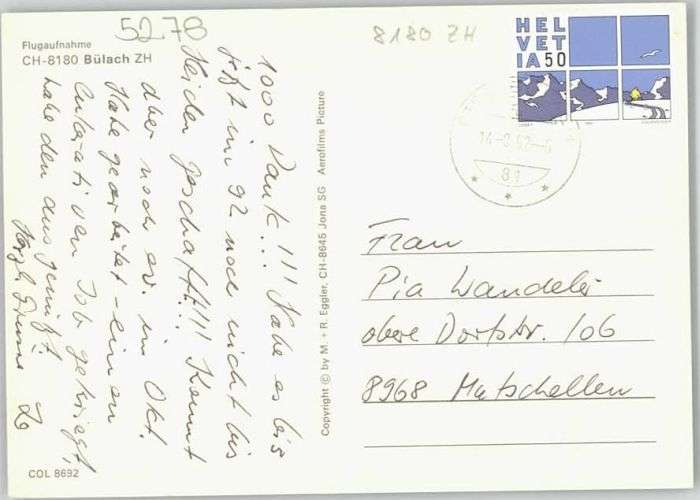 5270
8180 ZH
Flugaufnahme
CH-8180 Bülach ZH
HEL
VET
IA 50
1000 Dank!!! Habe es bis
jetzt im 92 noch nicht bis
Heiden geschafft!!! Kommt
aber noch ev. im Okt.
Habe gearbeitet - einen
Job gekriegt,
habe den
Copyright © by M. + R. Eggler, CH-8645 Jona SG Aerofilms Picture
Frau
Pia Wandeler
obere Dorfstr. 106
8968 Mutschellen
COL 8692